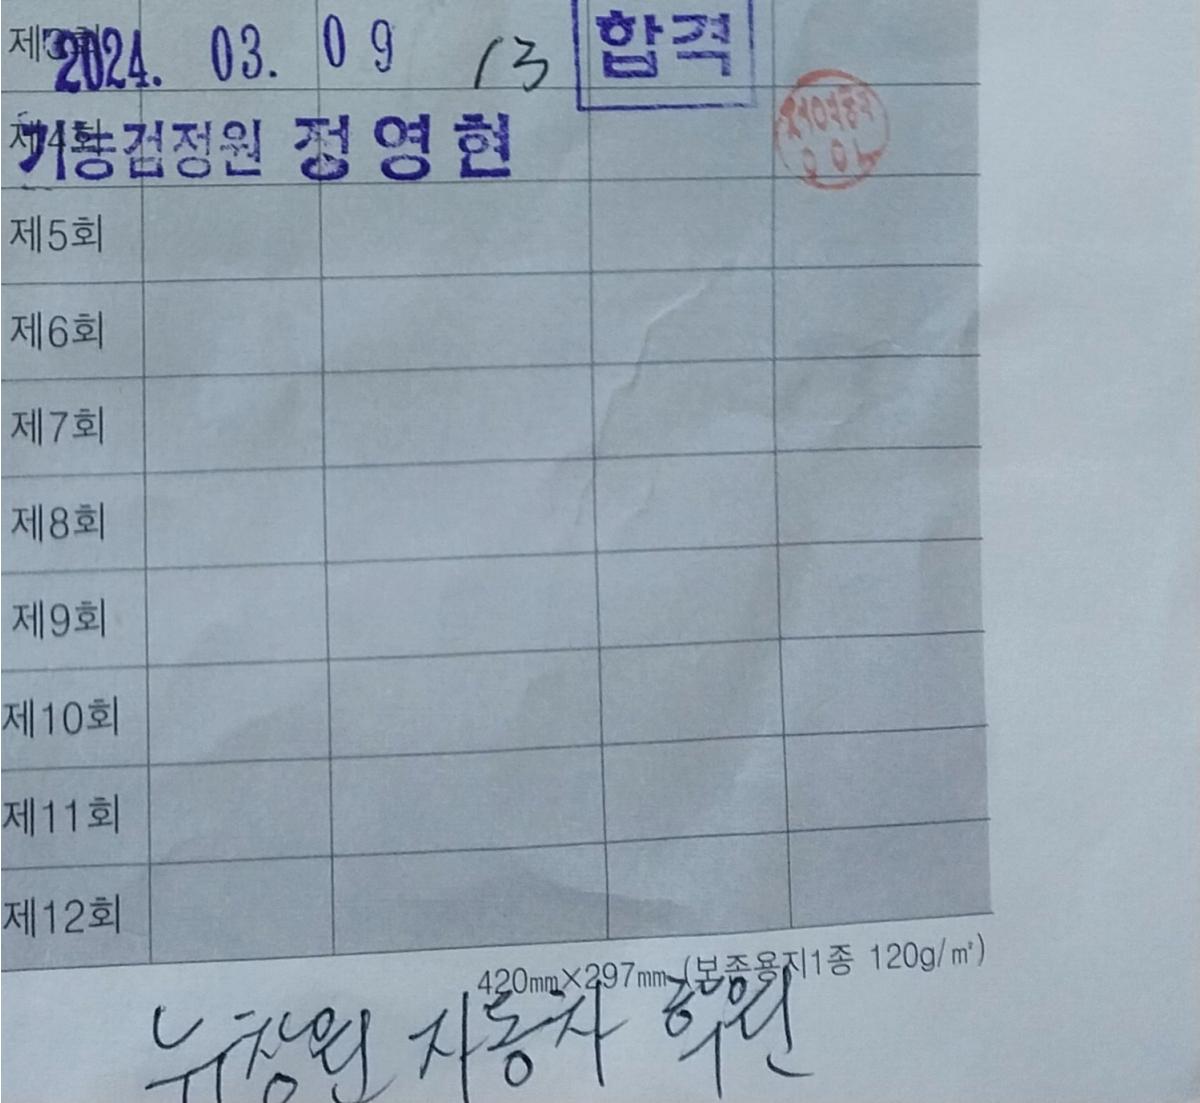 제3회 2024. 03. 09 13 합격
제4회 기능검정원 정영현
제5회
제6회
제7회
제8회
제9회
제10회
제11회
제12회
420mm×297mm (보존용지1종 120g/㎡)
뉴창원 자동차 학원